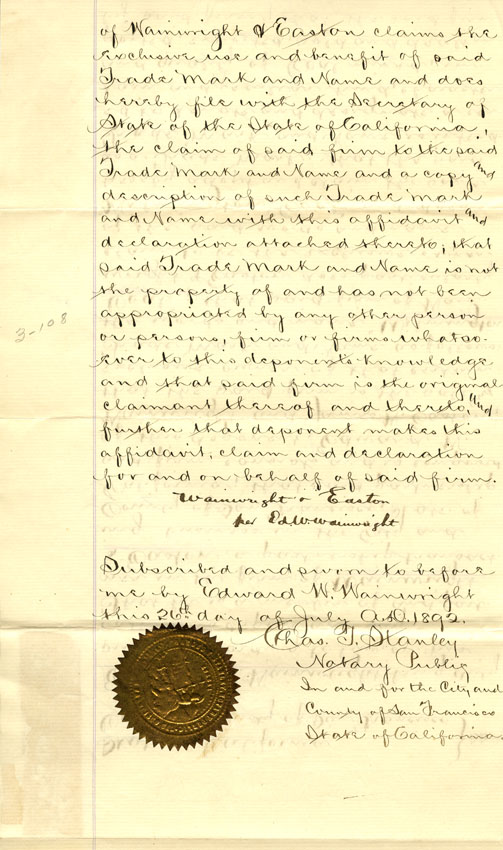 of Wainwright & Easton claims the
exclusive use and benefit of said
Trade Mark and Name and does
hereby file with the Secretary of
State of the State of California,
the claim of said firm to the said
Trade Mark and Name and a copy and
description of such Trade Mark
and Name with this affidavit and
declaration attached thereto; that
said Trade Mark and Name is not
the property of and has not been
appropriated by any other person
or persons, firm or firms whatso-
ever to this deponents knowledge
and that said firm is the original
claimant thereof and thereto, and
further that deponent makes this
affidavit, claim and declaration
for and on behalf of said firm.
Wainwright & Easton
per Ed. W. Wainwright
Subscribed and sworn to before
me by Edward W. Wainwright
this 26th day of July A.D. 1892.
Chas. T. Stanley
Notary Public
In and for the City and
County of San Francisco
State of California.
3-108